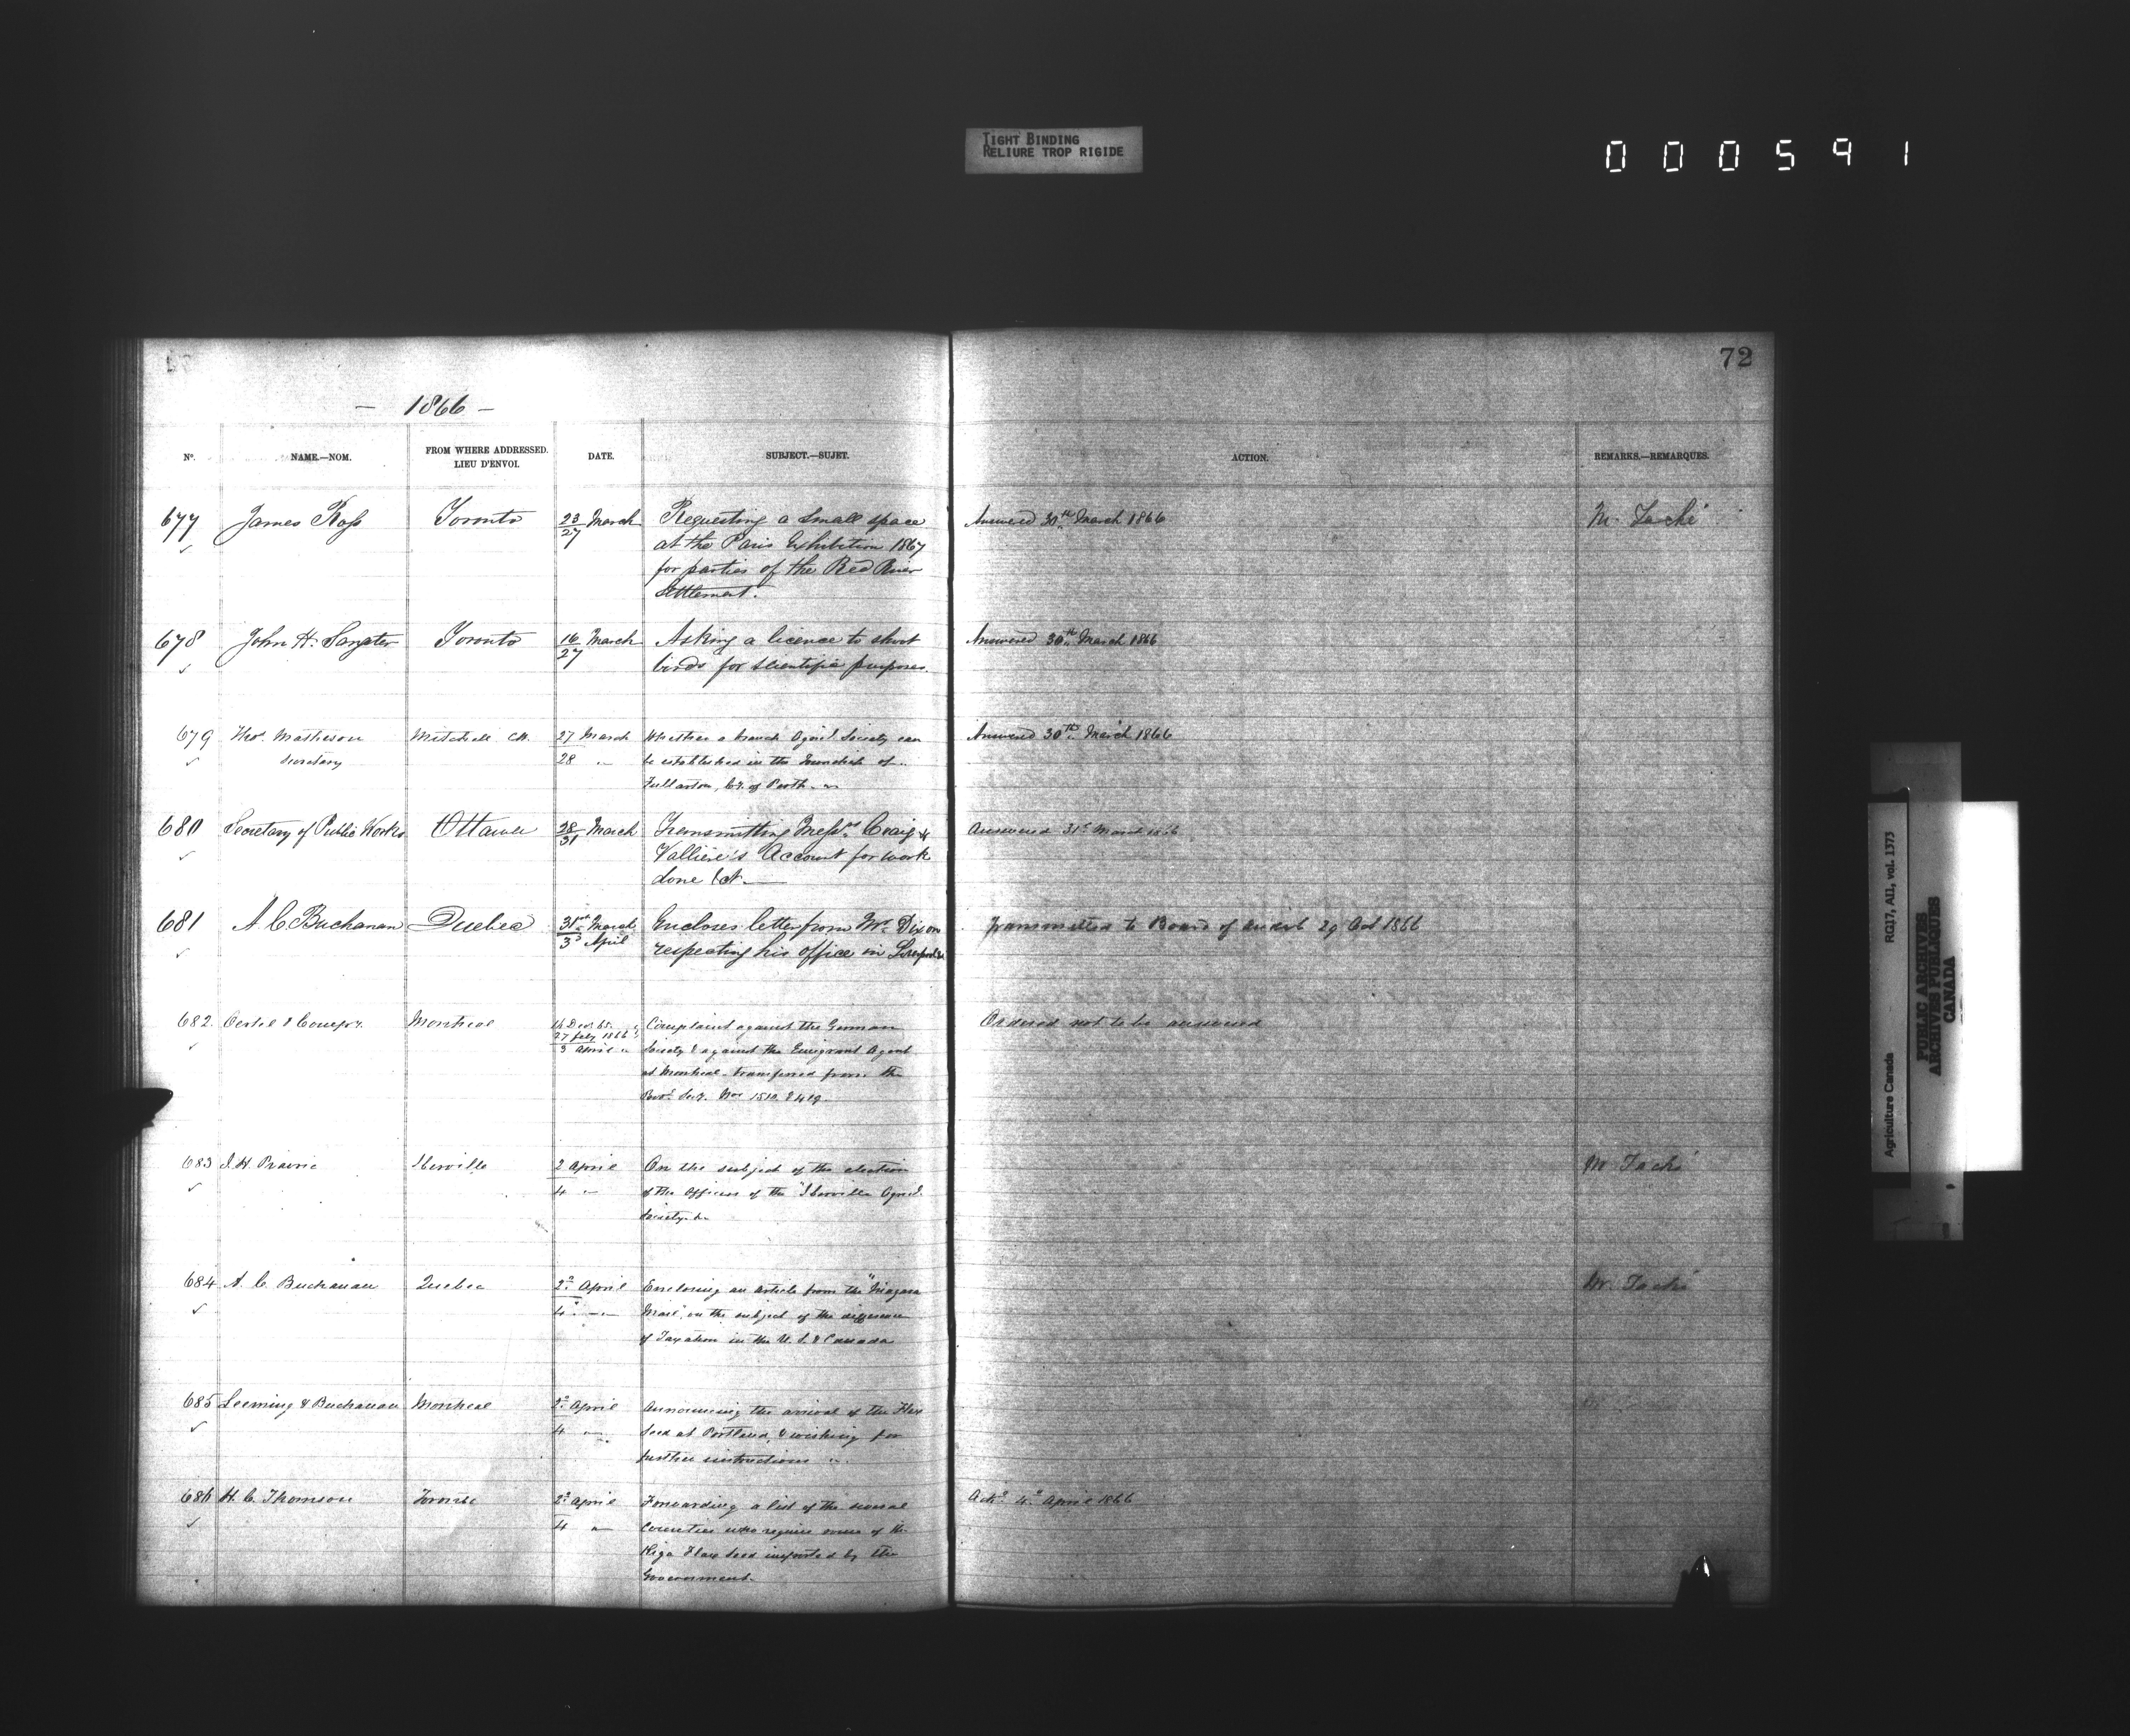 TIGHT BINDING
RELIURE TROP RIGIDE
000591
72
— 1866 —
No. NAME.—NOM. FROM WHERE ADDRESSED. LIEU D'ENVOI. DATE. SUBJECT.—SUJET. ACTION. REMARKS.—REMARQUES.
677 James Ross Toronto 23/27 March Requesting a small space Answered 30th March 1866 M. Taché
at the Paris Exhibition 1867
for parties of the Red River
Settlement.
678 John H. Sangster Toronto 16/27 March Asking a licence to shoot Answered 30th March 1866
birds for scientific purposes.
679 Thos. Matheson Mitchell C.W. 27 March Whether a branch Agricl. Society can Answered 30th March 1866
Secretary 28 " be established in the Township of
Fullarton, Co. of Perth.
680 Secretary of Public Works Ottawa 28/31 March Transmitting Messrs. Craig &
Answered 31st March 1866
Vallière's Account for work
done &c.
681 A. C. Buchanan Quebec 31st March Encloses letter from Mr. Dixon Transmitted to Board of Audit 29 Oct 1866
3d April respecting his office in Liverpool
682 Oertel & Compy. Montreal 16 Dec. 65. Complaint against the German Ordered not to be answered
27 July 1866
3 April " Society & against the Emigrant Agent
at Montreal - transferred from the
Provl. Secy. Nos 1510. & 419
683 J. H. Prairie Iberville 2 April On the subject of the election M Taché
4 " of the Officers of the "Iberville Agricl.
Society. &c
684 A. C. Buchanan Quebec 2d April Enclosing an article from the "Niagara M. Taché
4 " Mail", on the subject of the difference
of Taxation in the U. S. & Canada
685 Leeming & Buchanan Montreal 2d April Announcing the arrival of the Flax
4 " Seed at Portland, & wishing for
further instructions
686 H. C. Thomson Toronto 2d April Forwarding a list of the several Ackd 4th April 1866
4 " Counties who require some of the
Riga Flax Seed imported by the
Government.
Agriculture Canada RG17, AII, vol. 1373
PUBLIC ARCHIVES
ARCHIVES PUBLIQUES
CANADA